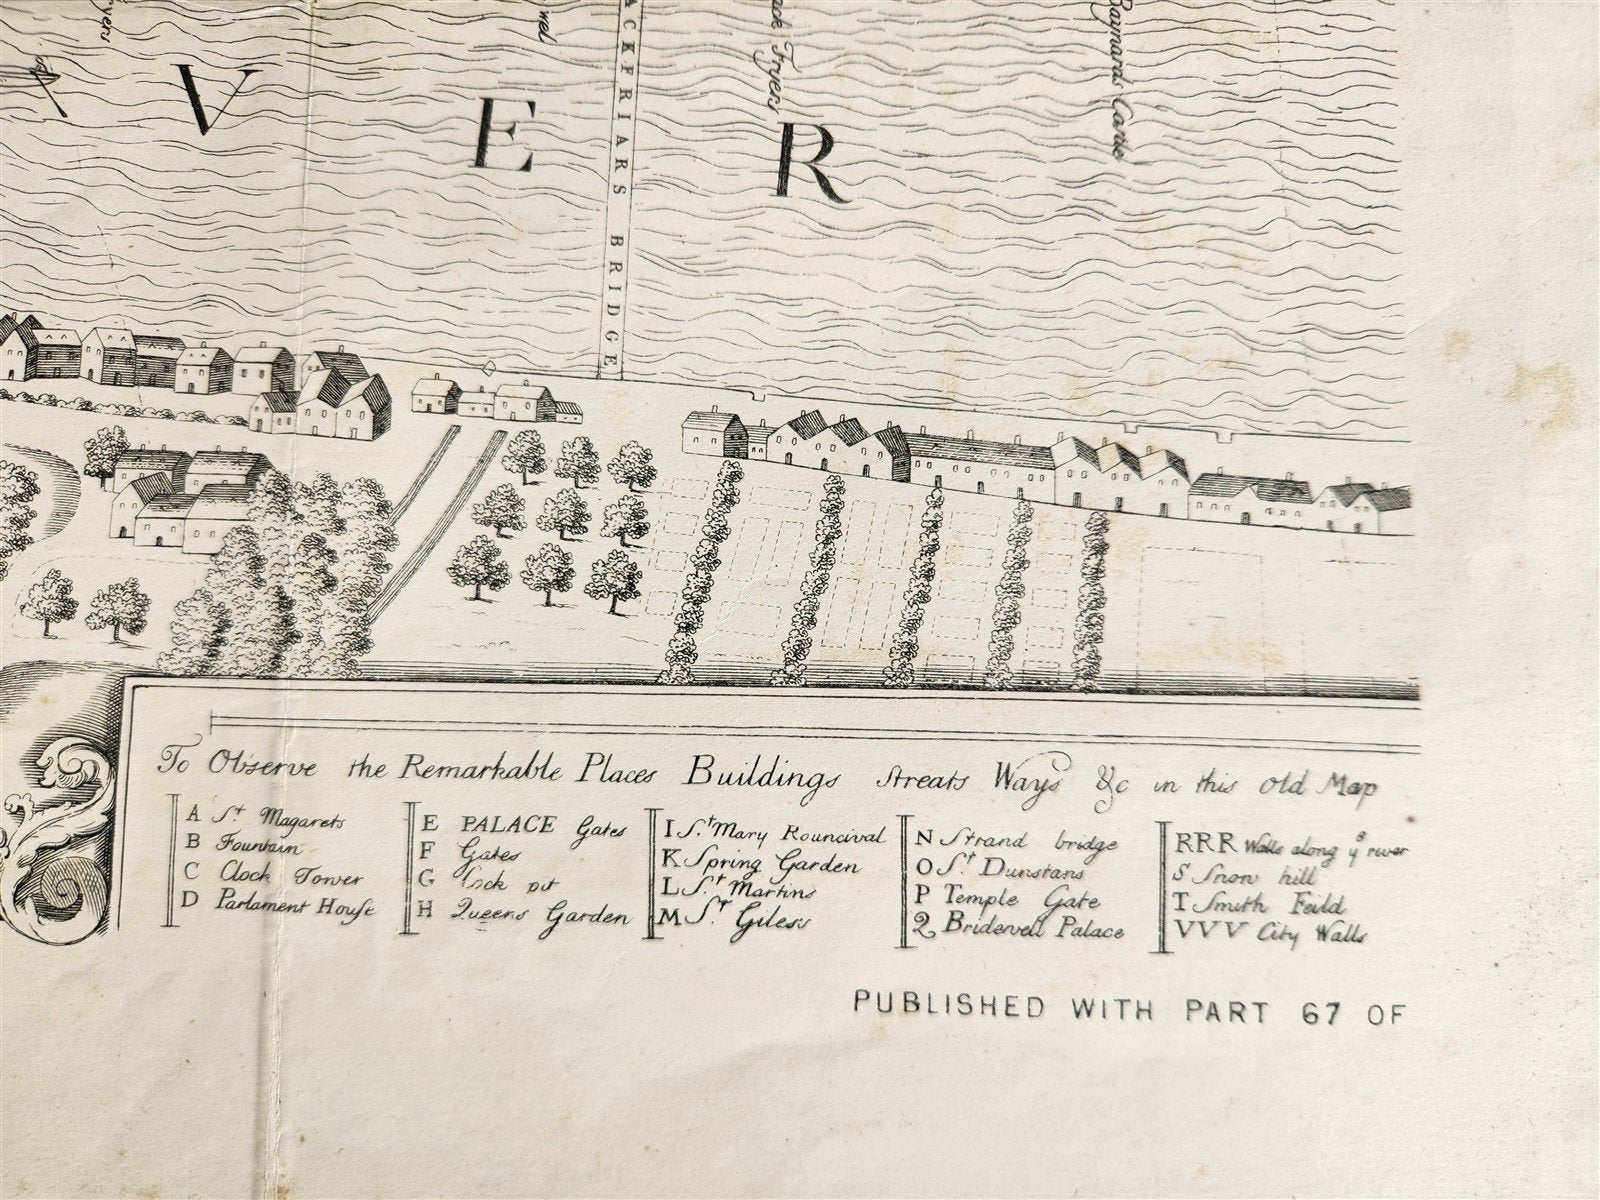 V E R
BLACKFRIARS BRIDGE
Fryers
Baynards Castle
To Observe the Remarkable Places Buildings Streats Ways &c in this Old Map
A St Magarets
B Fountain
C Clock Tower
D Parlament House
E PALACE Gates
F Gates
G Cock pit
H Queens Garden
I St Mary Rouncival
K Spring Garden
L St Martins
M St Giless
N Strand bridge
O St Dunstans
P Temple Gate
Q Bridewell Palace
RRR Walls along ye river
S Snow hill
T Smith Feild
VVV City Walls
PUBLISHED WITH PART 67 OF